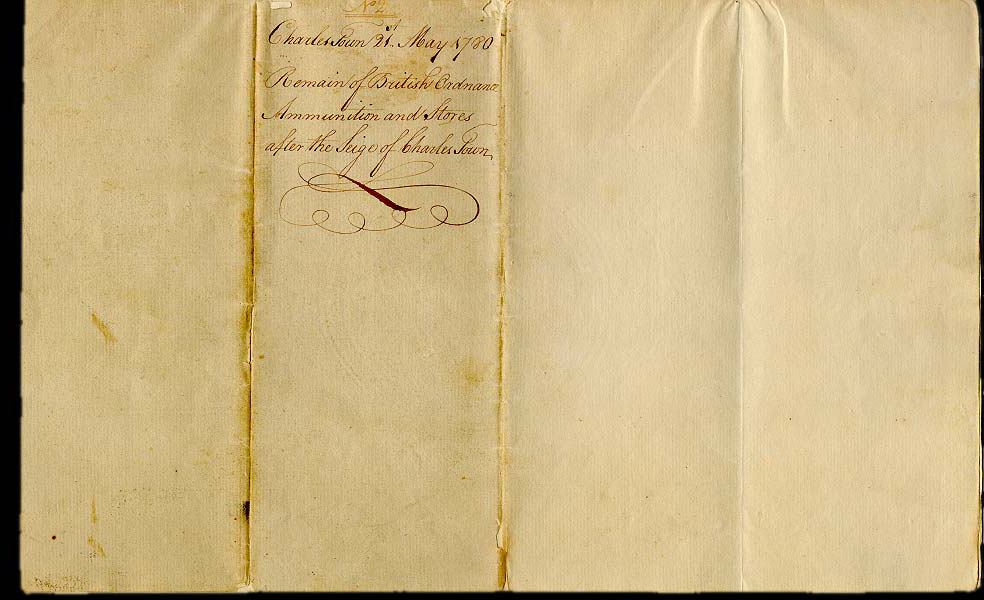 No 2
Charles Town 21st May 1780
Remain of British Ordnance
Ammunition and Stores
after the Seige of Charles Town